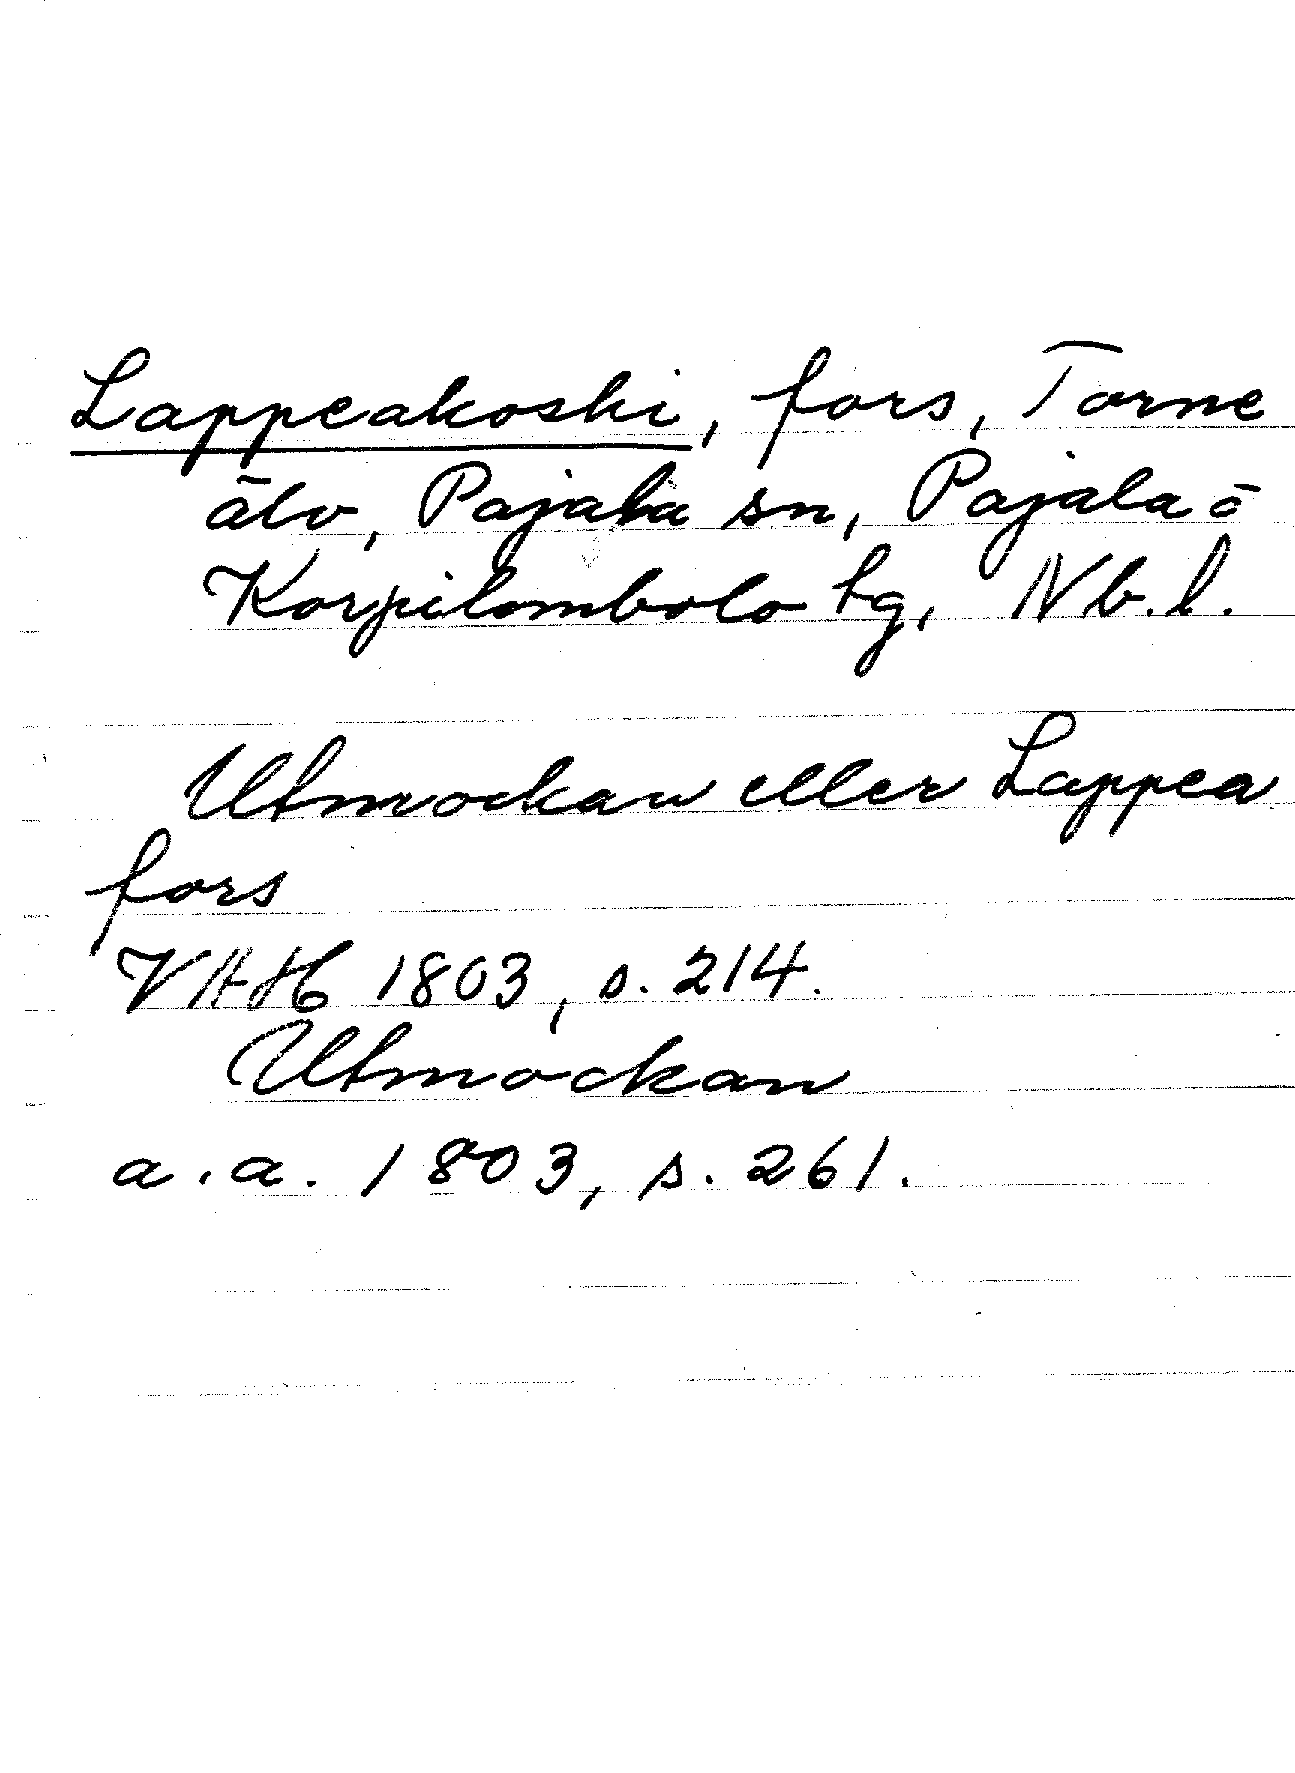 Lappeakoski, fors, Torne
älv, Pajala sn, Pajala o
Korpilombolo tg, Nb. l.
Utmockan eller Lappea
fors
VAH 1803, s. 214.
Utmockan
a. a. 1803, s. 261.